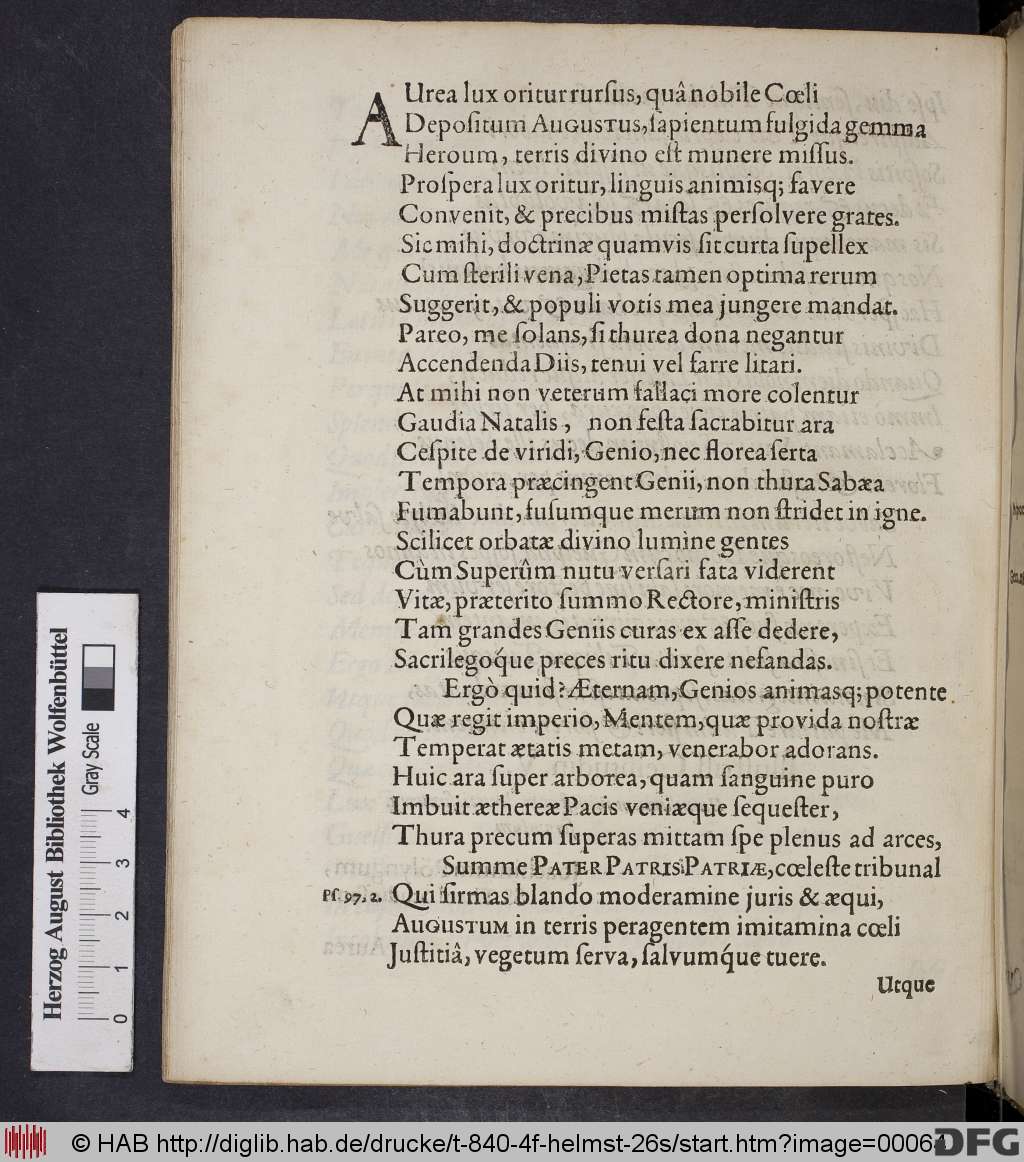 AUrea lux oritur rurſus, quâ nobile Cœli
Depoſitum AUGUSTUS, ſapientum fulgida gemma
Heroum, terris divino eſt munere miſſus.
Proſpera lux oritur, linguis animisq; favere
Convenit, & precibus miſtas perſolvere grates.
Sic mihi, doctrinæ quamvis ſit curta ſupellex
Cum ſterili vena, Pietas tamen optima rerum
Suggerit, & populi votis mea jungere mandat.
Pareo, me ſolans, ſi thurea dona negantur
Accendenda Diis, tenui vel farre litari.
At mihi non veterum fallaci more colentur
Gaudia Natalis, non feſta ſacrabitur ara
Ceſpite de viridi, Genio, nec florea ſerta
Tempora præcingent Genii, non thura Sabæa
Fumabunt, fuſumque merum non ſtridet in igne.
Scilicet orbatæ divino lumine gentes
Cùm Superûm nutu verſari fata viderent
Vitæ, præterito ſummo Rectore, miniſtris
Tam grandes Geniis curas ex aſſe dedere,
Sacrilegoq́ue preces ritu dixere nefandas.
Ergò quid? Æternam, Genios animasq; potente
Quæ regit imperio, Mentem, quæ provida noſtræ
Temperat ætatis metam, venerabor adorans.
Huic ara ſuper arborea, quam ſanguine puro
Imbuit æthereæ Pacis veniæque ſequeſter,
Thura precum ſuperas mittam ſpe plenus ad arces,
Summe PATER PATRIS PATRIÆ, cœleſte tribunal
Pſ. 97. 2. Qui firmas blando moderamine juris & æqui,
AUGUSTUM in terris peragentem imitamina cœli
Juſtitiâ, vegetum ſerva, ſalvumq́ue tuere.
Utque
Herzog August Bibliothek Wolfenbüttel
Gray Scale
0 1 2 3 4
© HAB http://diglib.hab.de/drucke/t-840-4f-helmst-26s/start.htm?image=00064
DFG